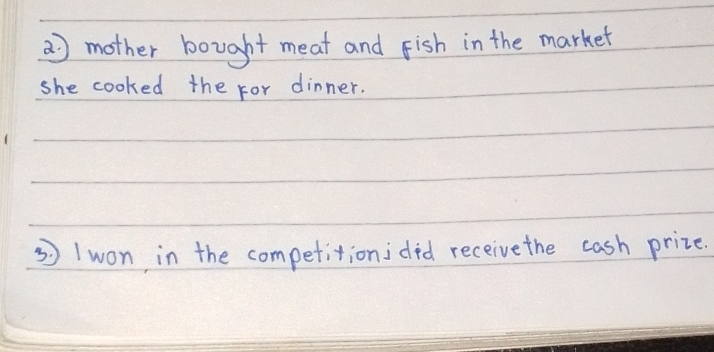 2.) mother bought meat and fish in the market
she cooked the for dinner.
3.) I won in the competition i did receive the cash prize.